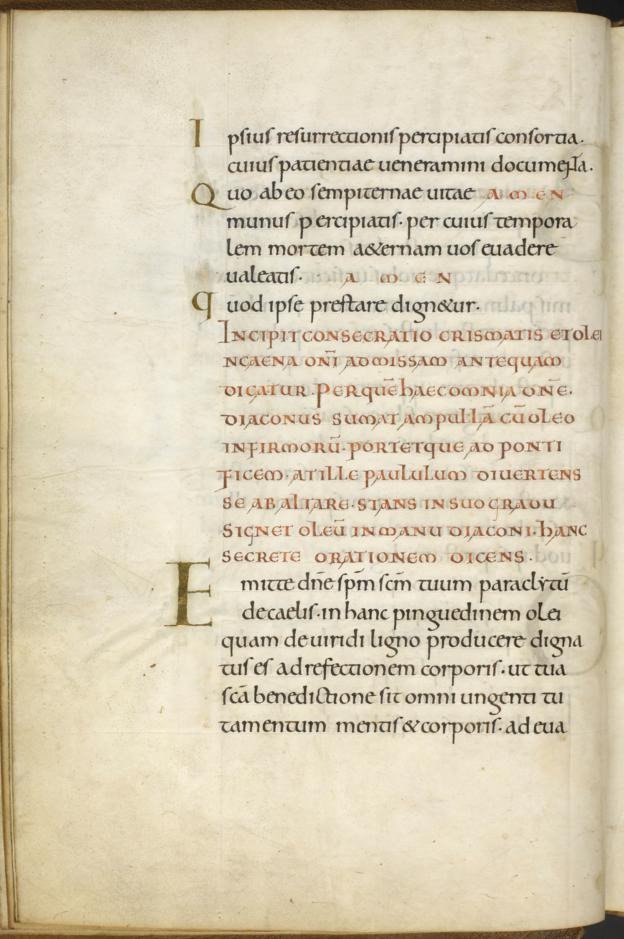 Ipsius resurrectionis percipiatis consortia.
cuius patientiae ueneramini documenta.
Quo ab eo sempiternae uitae AMEN
munus percipiatis. per cuius tempora
lem mortem a&ernam uos euadere
ualeatis. AMEN
Quod ipse prestare dign&ur.
INCIPIT CONSECRATIO CRISMATIS ET OLEI
NCAENA DNĪ AD MISSAM ANTEQUAM
DICATUR. PER QUĒ HAEC OMNIA DNE.
DIACONUS SUMAT AMPULLĀ CŪ OLEO
INFIRMORŪ. PORTETQUE AD PONTI
FICEM. AT ILLE PAULULUM DIVERTENS
SE AB ALTARE. STANS IN SUO GRADU
SIGNET OLEŪ IN MANU DIACONI. HANC
SECRETE ORATIONEM DICENS.
Emitte dn̄e sp̄m sc̄m tuum paraclytū
de caelis. in hanc pinguedinem olei
quam de uiridi ligno producere digna
tus es ad refectionem corporis. ut tua
sc̄a benedictione sit omni ungenti tu
tamentum mentis & corporis. ad eua